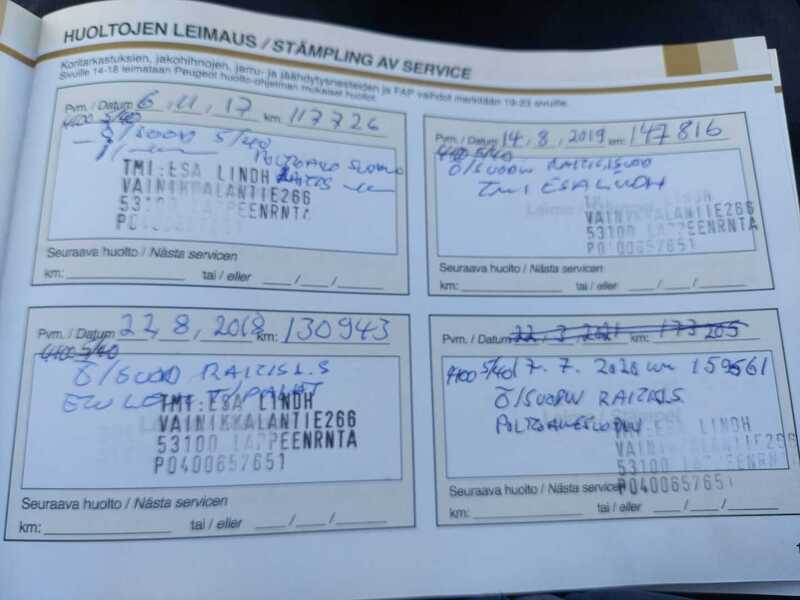 HUOLTOJEN LEIMAUS / STÄMPLING AV SERVICE
Koritarkastuksien, jakohihnojen, jarru- ja jäähdytysnesteiden ja FAP vaihdot merkitään 19-23 sivuille.
Sivuille 14-18 leimataan Peugeot huolto-ohjelman mukaiset huollot.
Pvm. / Datum 6, 11, 17 km: 117726
4400 5/40
Ö/SUOD 5/40
POLTTOAINE SUOD
TMI:ESA LINDH
VAINIKKALANTIE266
53100 LAPPEENRNTA
P0400657651
Seuraava huolto / Nästa servicen
km: tai / eller
Pvm. / Datum 14, 8, 2019 km: 147816
4400 5/40
Ö/SUODW RAITIS.SUOD
TMI ESA LINDH
LINDH
VAINIKKALANTIE266
53100 LAPPEENRNTA
P0400657651
Seuraava huolto / Nästa servicen
km: tai / eller
Pvm. / Datum 22, 8, 2018 km: 130943
4400 5/40
Ö/SUOD RAITIS.S
TMI:ESA LINDH
VAINIKKALANTIE266
53100 LAPPEENRNTA
P0400657651
Seuraava huolto / Nästa servicen
km: tai / eller
Pvm. / Datum 22, 3, 2021 km: 173205
4400 5/40 17. 7. 2020 km 159561
Ö/SUODW RAITIS.S
TMI:ESA LINDH
VAINIKKALANTIE266
53100 LAPPEENRNTA
P0400657651
Seuraava huolto / Nästa servicen
km: tai / eller